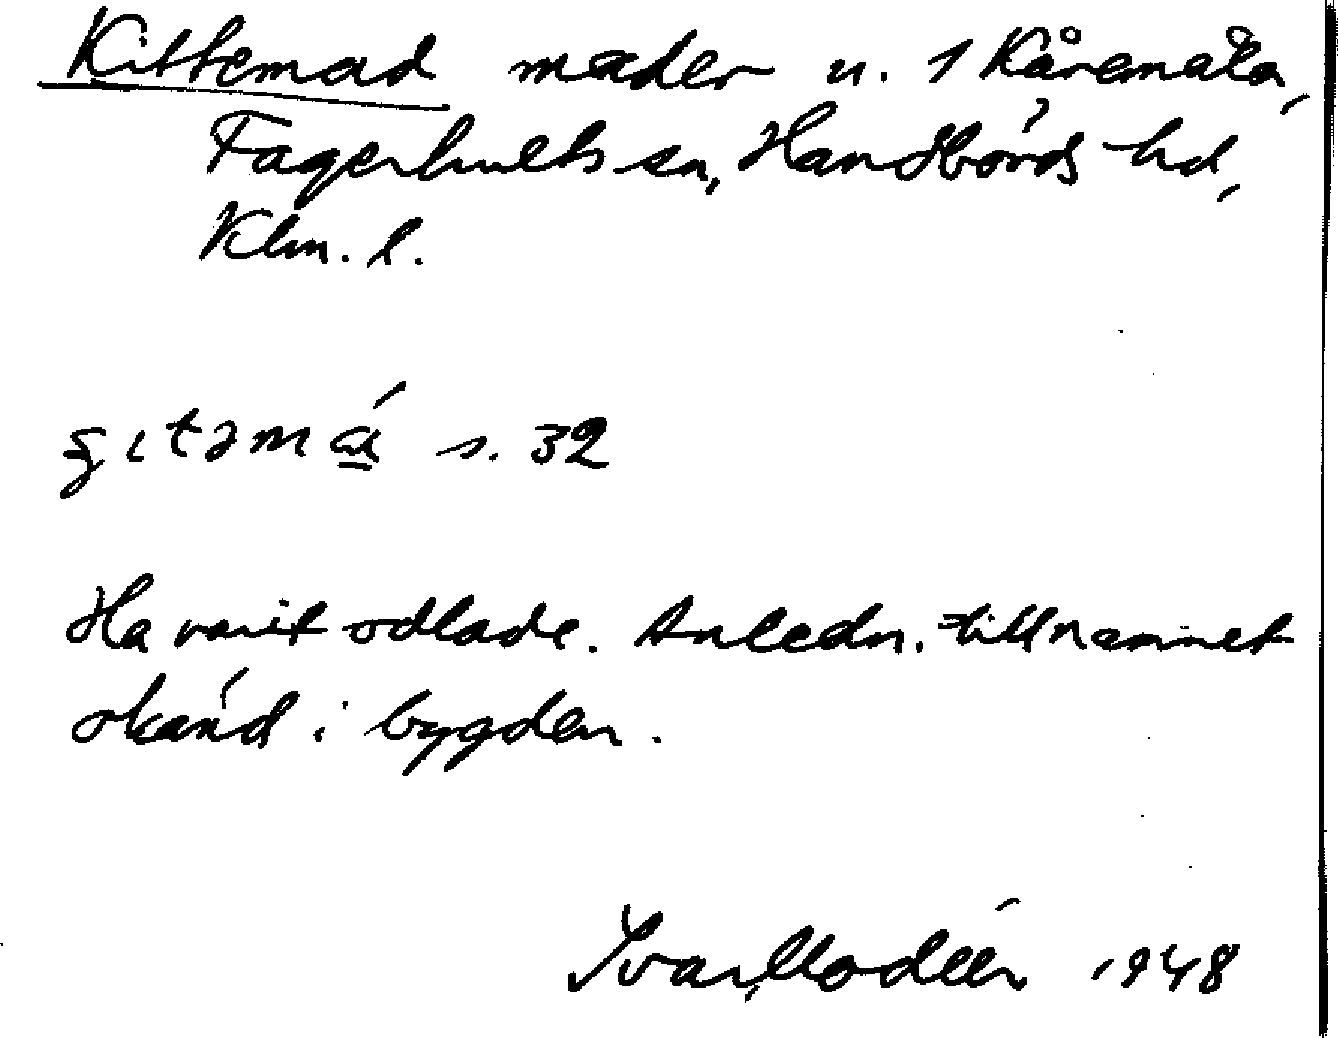 Kittemad mader u. 1 Kåremåla,
Fagerhults sn, Handbörds hd,
Klm. l.
s. 32
Ha varit odlade. Anledn. till namnet
okänd i bygden.
Ivar Modéer 1948